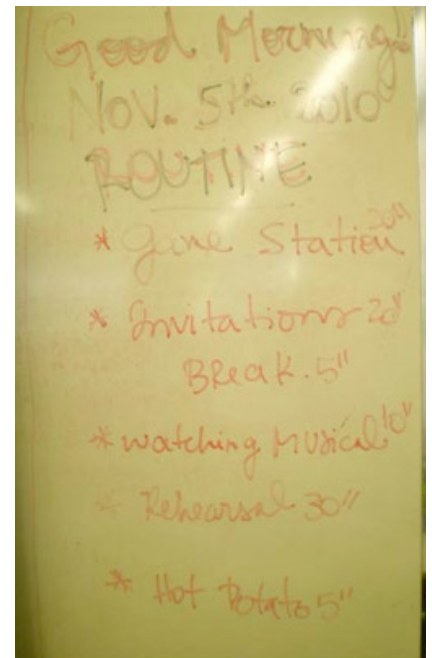 Good Morning!
Nov. 5th. 2010
ROUTINE
* Game Station 20"
* Invitations 20"
BReak. 5"
* watching Musical 10"
* Rehearsal 30"
* Hot Potato 5"